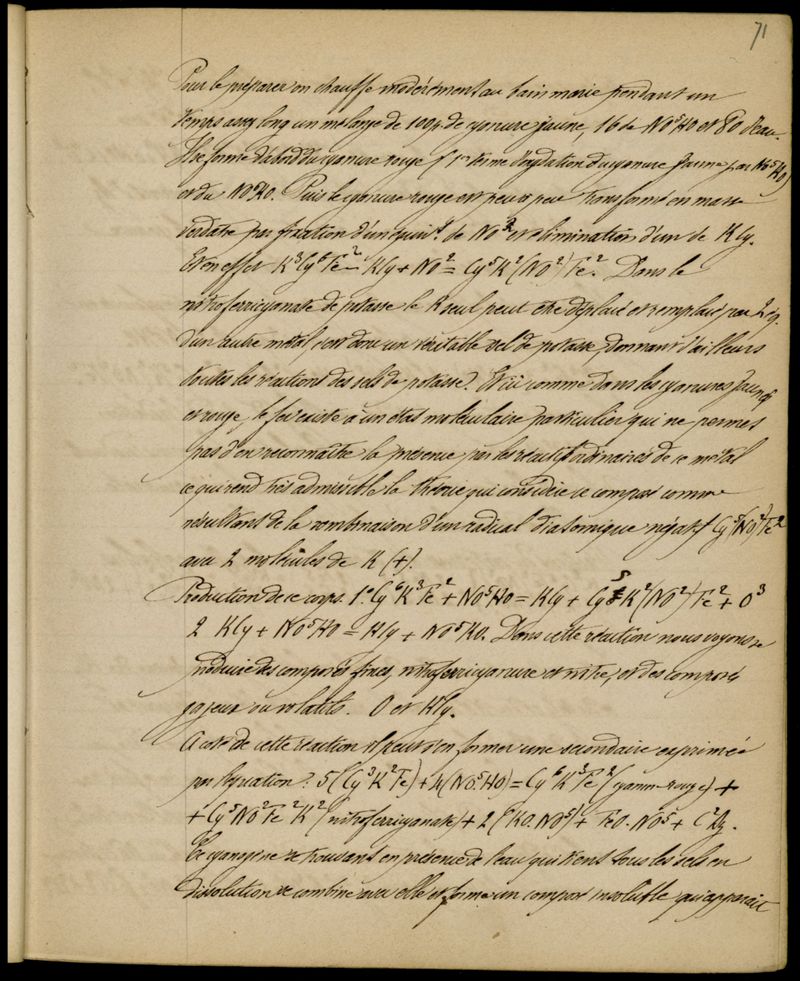 71
Pour le préparer on chauffe modérément au bain marie pendant un
temps assez long un mélange de 100g. de cyanure jaune, 16 de NO⁵HO et 80 d'eau.
Il se forme d'abord du cyanure rouge (1er terme d'oxydation du cyanure jaune par NO⁵HO)
et du Puis le cyanure rouge est peu à peu transformé en masse
verdâtre par fixation d'un équivt. de NO² et élimination d'un de KCy.
Et en effet K³Cy⁶Fe² – KCy + NO² = Cy⁵K²(NO²)Fe². Dans le
nitroferricyanate de potasse le K seul peut être déplacé et remplacé par 2 éq.
d'un autre métal, c'est donc un véritable sel de potasse, donnant d'ailleurs
toutes les réactions des sels de potasse. Et ici comme dans les cyanures jaune
et rouge, le fer existe à un état moléculaire particulier qui ne permet
pas d'en reconnaître la présence par les réactifs ordinaires de ce métal
ce qui rend très admissible la théorie qui considère ce composé comme
résultant de la combinaison d'un radical diatomique négatif Cy⁵(NO²)Fe²
avec 2 molécules de K (+).
Production de ce corps. 1° Cy⁶K³Fe² + NO⁵HO = KCy + Cy⁵K²(NO²)Fe² + O³
2 KCy + NO⁵HO = HCy + NO⁵KO. Dans cette réaction nous voyons se
produire des composés fixes, nitroferricyanure et nitre, et des composés
gazeux ou volatils. O et HCy.
A côté de cette réaction il peut s'en former une secondaire exprimée
par l'équation: 5(Cy³K²Fe) + 4(NO⁵HO) = Cy⁶K³Fe² (cyanure rouge) +
+ Cy⁵NO²Fe²K² (nitroferricyanate) + 2(KO.NO⁵) + FeO.NO⁵ + C²Az.
Ce cyanogène se trouvant en présence de l'eau qui tient tous les sels en
dissolution se combine avec elle et forme un composé insoluble qui apparaît